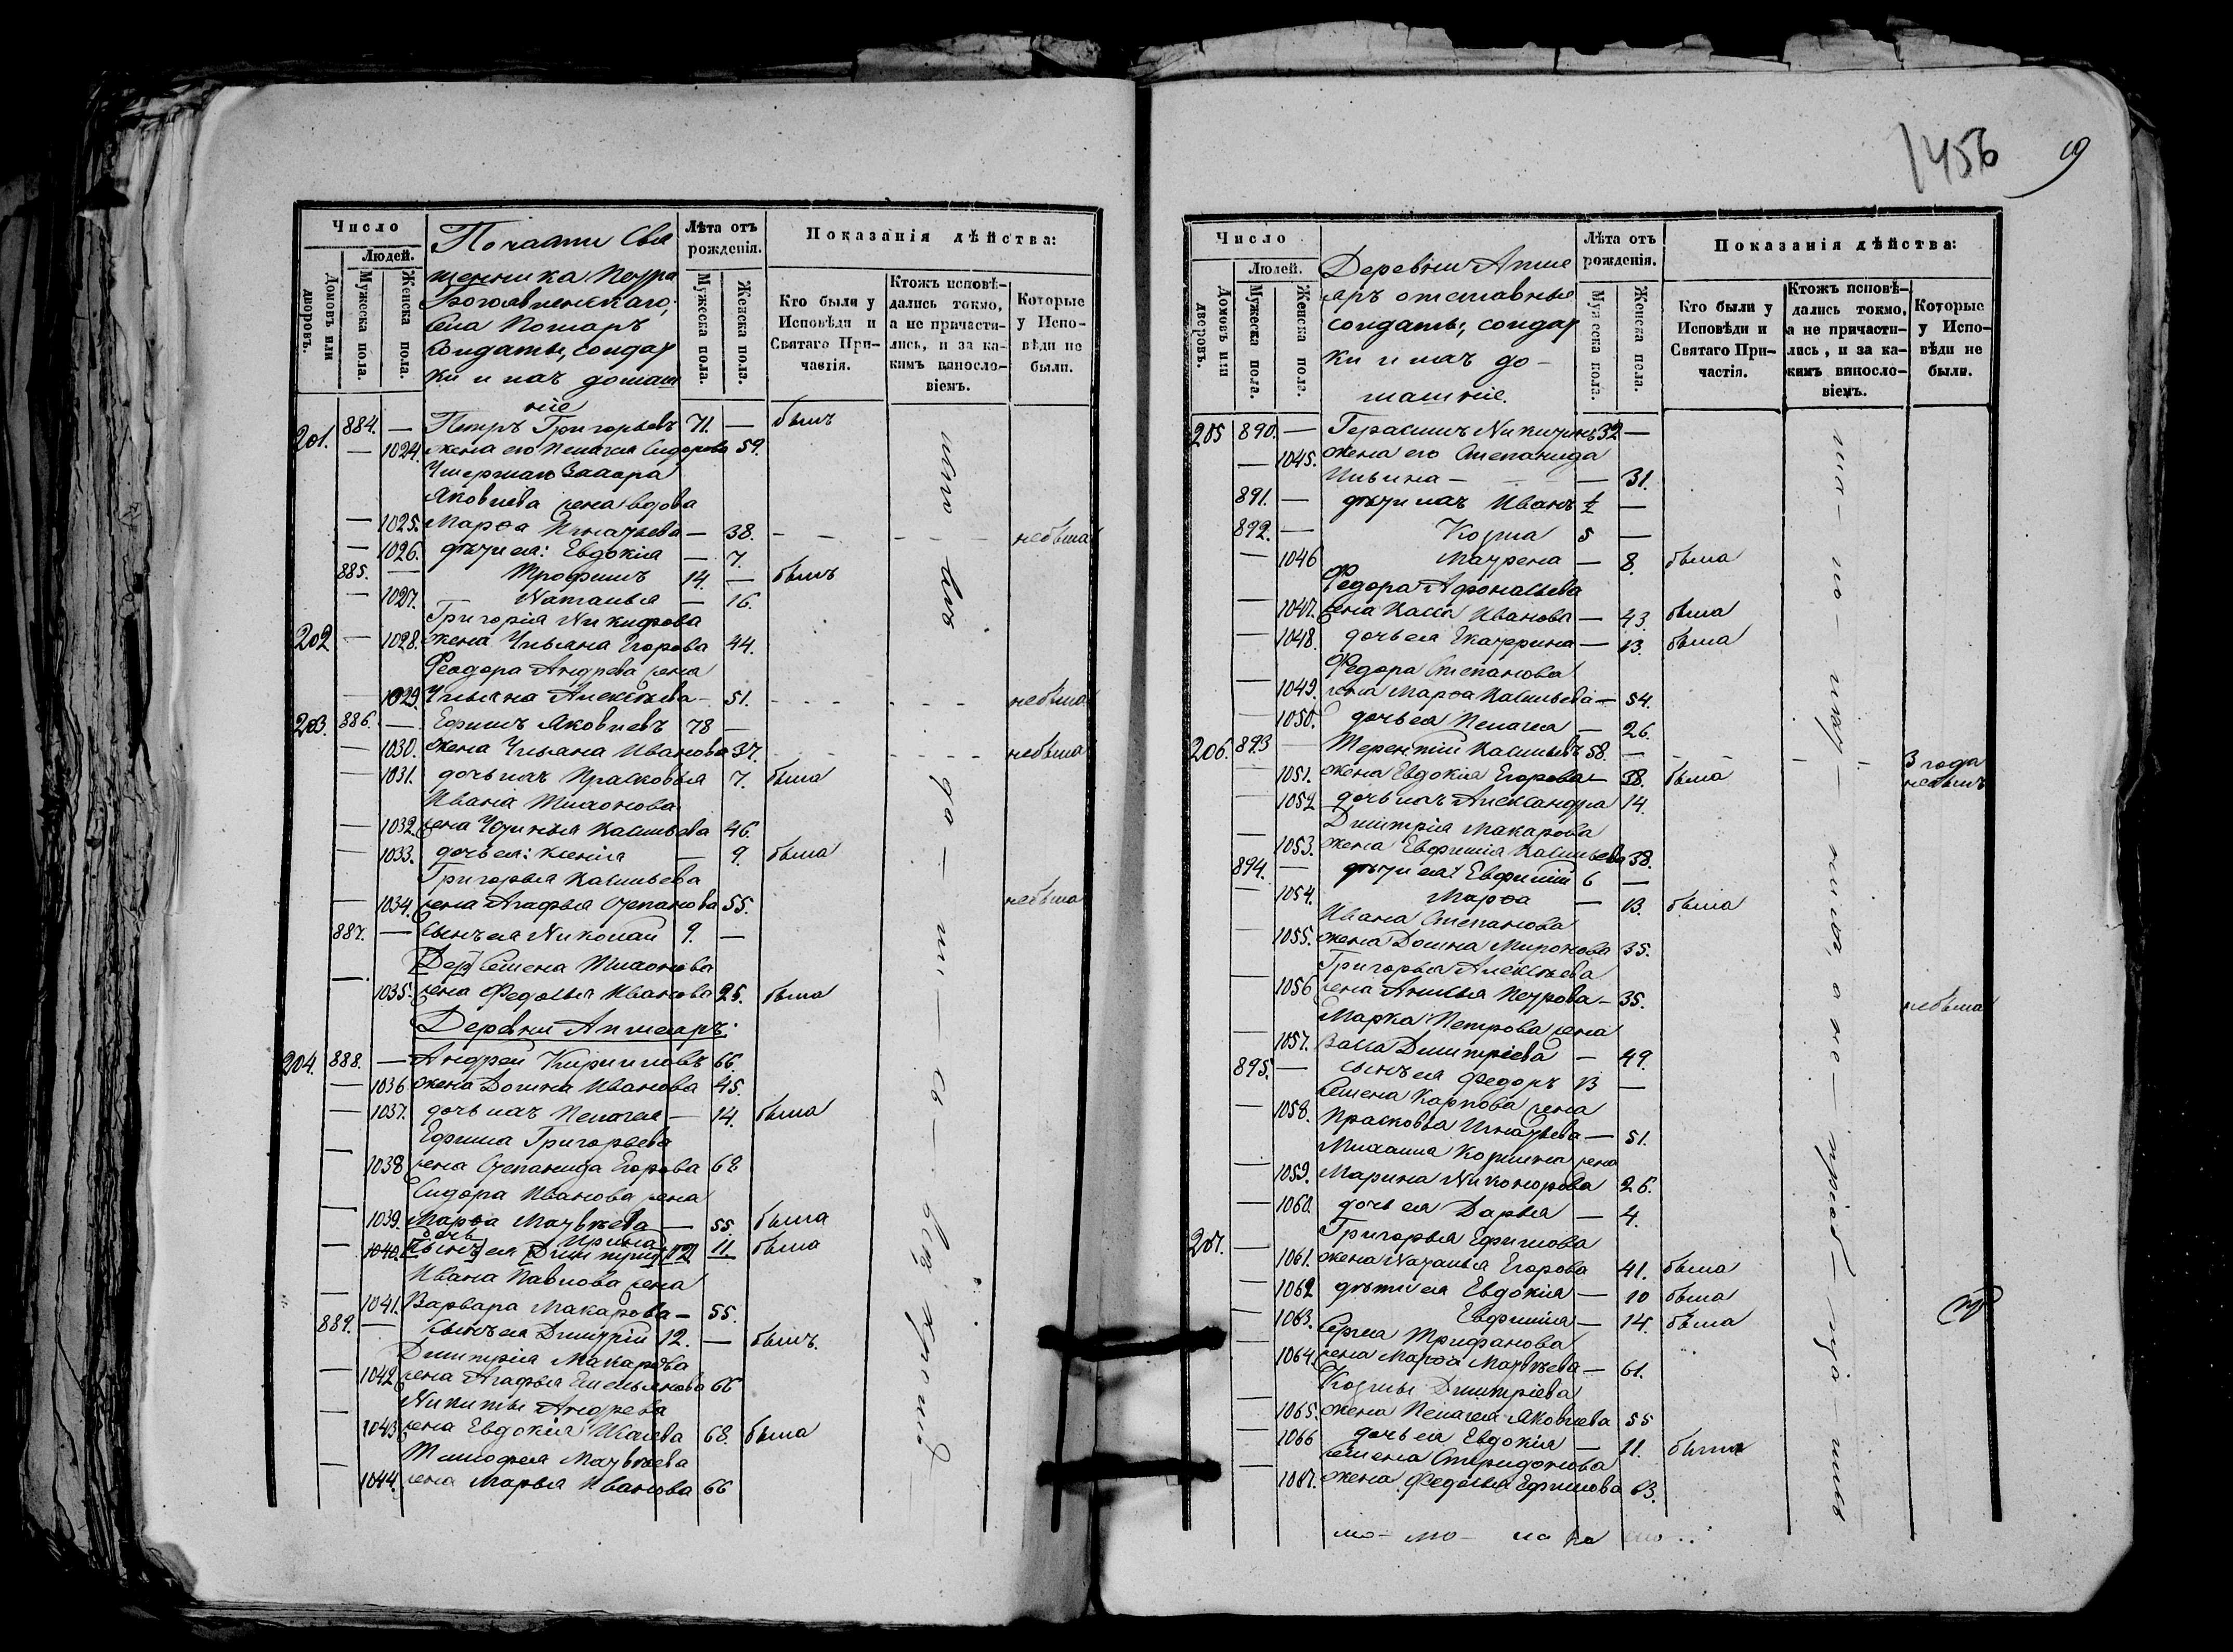 Число
Людей.
Домовъ или дворовъ.
Мужеска пола.
Женска пола.
По части Свя
щенника Петра
Богоявленскаго,
Села
солдаты, солдат
ки и ихъ домаш
ніе
Лѣта отъ рожденія.
Мужеска пола.
Женска пола.
Показанія дѣйства:
Кто были у Исповѣди и Святаго Причастія.
Ктожъ исповѣдались токмо, а не причастились, и за какимъ винословіемъ.
Которые у Исповѣди не были.
201. 884. — Петръ Григорьевъ 71. — былъ
— 1024. жена его Пелагея Сидорова 59.
Умершаго Захара
Яковлева жена вдова
— 1025. Марѳа Игнатьева — 38. небыла
— 1026. дѣти ея: Евдокія — 7.
885. — Трофимъ 14. — былъ
— 1027. Наталья — 16.
Григорія Никифорова
202 — 1028. жена Ульяна Егорова 44.
Феодора Андреева жена
— 1029. Ульяна Алексѣева — 51. небыла
203. 886. — Ефимъ Яковлевъ 78 —
— 1030. жена Ульяна Иванова 37. небыла
— 1031. дочь ихъ Прасковья 7. была
Ивана Тихонова
— 1032. жена Устинья Васильева 46.
— 1033. дочь ея: Ксенія — 9. была
Григорья Васильева
— 1034. жена Агафья Степанова 55. небыла
887. — Сынъ ея Николай 9. —
[Дер] Семена Тихонова
— 1035. жена Федосья Иванова 25. была
Деревни
204. 888. — Андрей Кирилловъ 66.
— 1036 жена Домна Иванова 45.
— 1037. дочь ихъ Пелагея — 14. была
Ефима Григорьева
— 1038 жена Степанида Егорова 62
Сидора Иванова жена
— 1039. Марѳа Матвѣева — 55. была
дочь Ирина
— 1040. [Сынъ] ея [Димитрій] [12] 11 была
Ивана Павлова жена
— 1041. Варвара Макарова — 55.
889. — Сынъ ея Димитрій 12. — былъ.
Димитрія Макарова
— 1042 жена Агафья Емельянова 66
Никиты Андреева
— 1043 жена Евдокія Исаева 68. была
Тимофея Матвѣева
— 1044. жена Марья Иванова 66
1456
Число
Людей.
Домовъ или дворовъ.
Мужеска пола.
Женска пола.
Деревни
отставные
солдаты, солдат
ки и ихъ до-
машніе.
Лѣта отъ рожденія.
Мужеска пола.
Женска пола.
Показанія дѣйства:
Кто были у Исповѣди и Святаго Причастія.
Ктожъ исповѣдались токмо, а не причастились, и за какимъ винословіемъ.
Которые у Исповѣди не были.
205 890. — Герасимъ Никитинъ 32 —
— 1045. жена его Степанида
Ильина — — 31.
891. — дѣти ихъ Иванъ ½ —
892. — Козма 5 —
— 1046 Матрена — 8. была
Федора Афонасьева
— 1047. жена Васса Иванова — 43. была
— 1048. дочь ея Екатерина — 13. была
Федора Степанова
— 1049. жена Марѳа Васильева — 54.
— 1050. дочь ея Пелагея — 26.
206. 893 — Терентій Васильевъ 58. — 3 года
небылъ
— 1051. жена Евдокія Егорова — 38. была
— 1052 дочь ихъ Александра 14.
Димитрія Макарова
— 1053. жена Евфимія Васильева 38.
894. — дѣти ея Евфимій 6 —
— 1054. Марѳа — 13. была
Ивана Степанова
— 1055. жена Домна Миронова 35.
Григорья Алексѣева
— 1056 жена Анисья Петрова — 35. небыла
Марка Петрова жена
— 1057. Васса Димитріева — 49.
895. — Сынъ ея Федоръ 13 —
Семена Карпова жена
— 1058. Прасковья Игнатьева — 51.
Михаила Козмина жена
— 1059. Марина Никонорова 26.
— 1060. дочь ея Дарья — 4.
207. — Григорья Ефимова
1061. жена Наталья Егорова 41. была
— 1062 дѣти ея Евдокія — 10 была
— 1063. Евфимія — 14. была
Сергея Трифанова
— 1064. жена Марѳа Матвѣева — 61.
Козмы Димитріева
— 1065. жена Пелагея Яковлева 55
1066 дочь ея Евдокія — 11. была
Семена Спиридонова
— 1067. жена Федосья Ефимова 63.